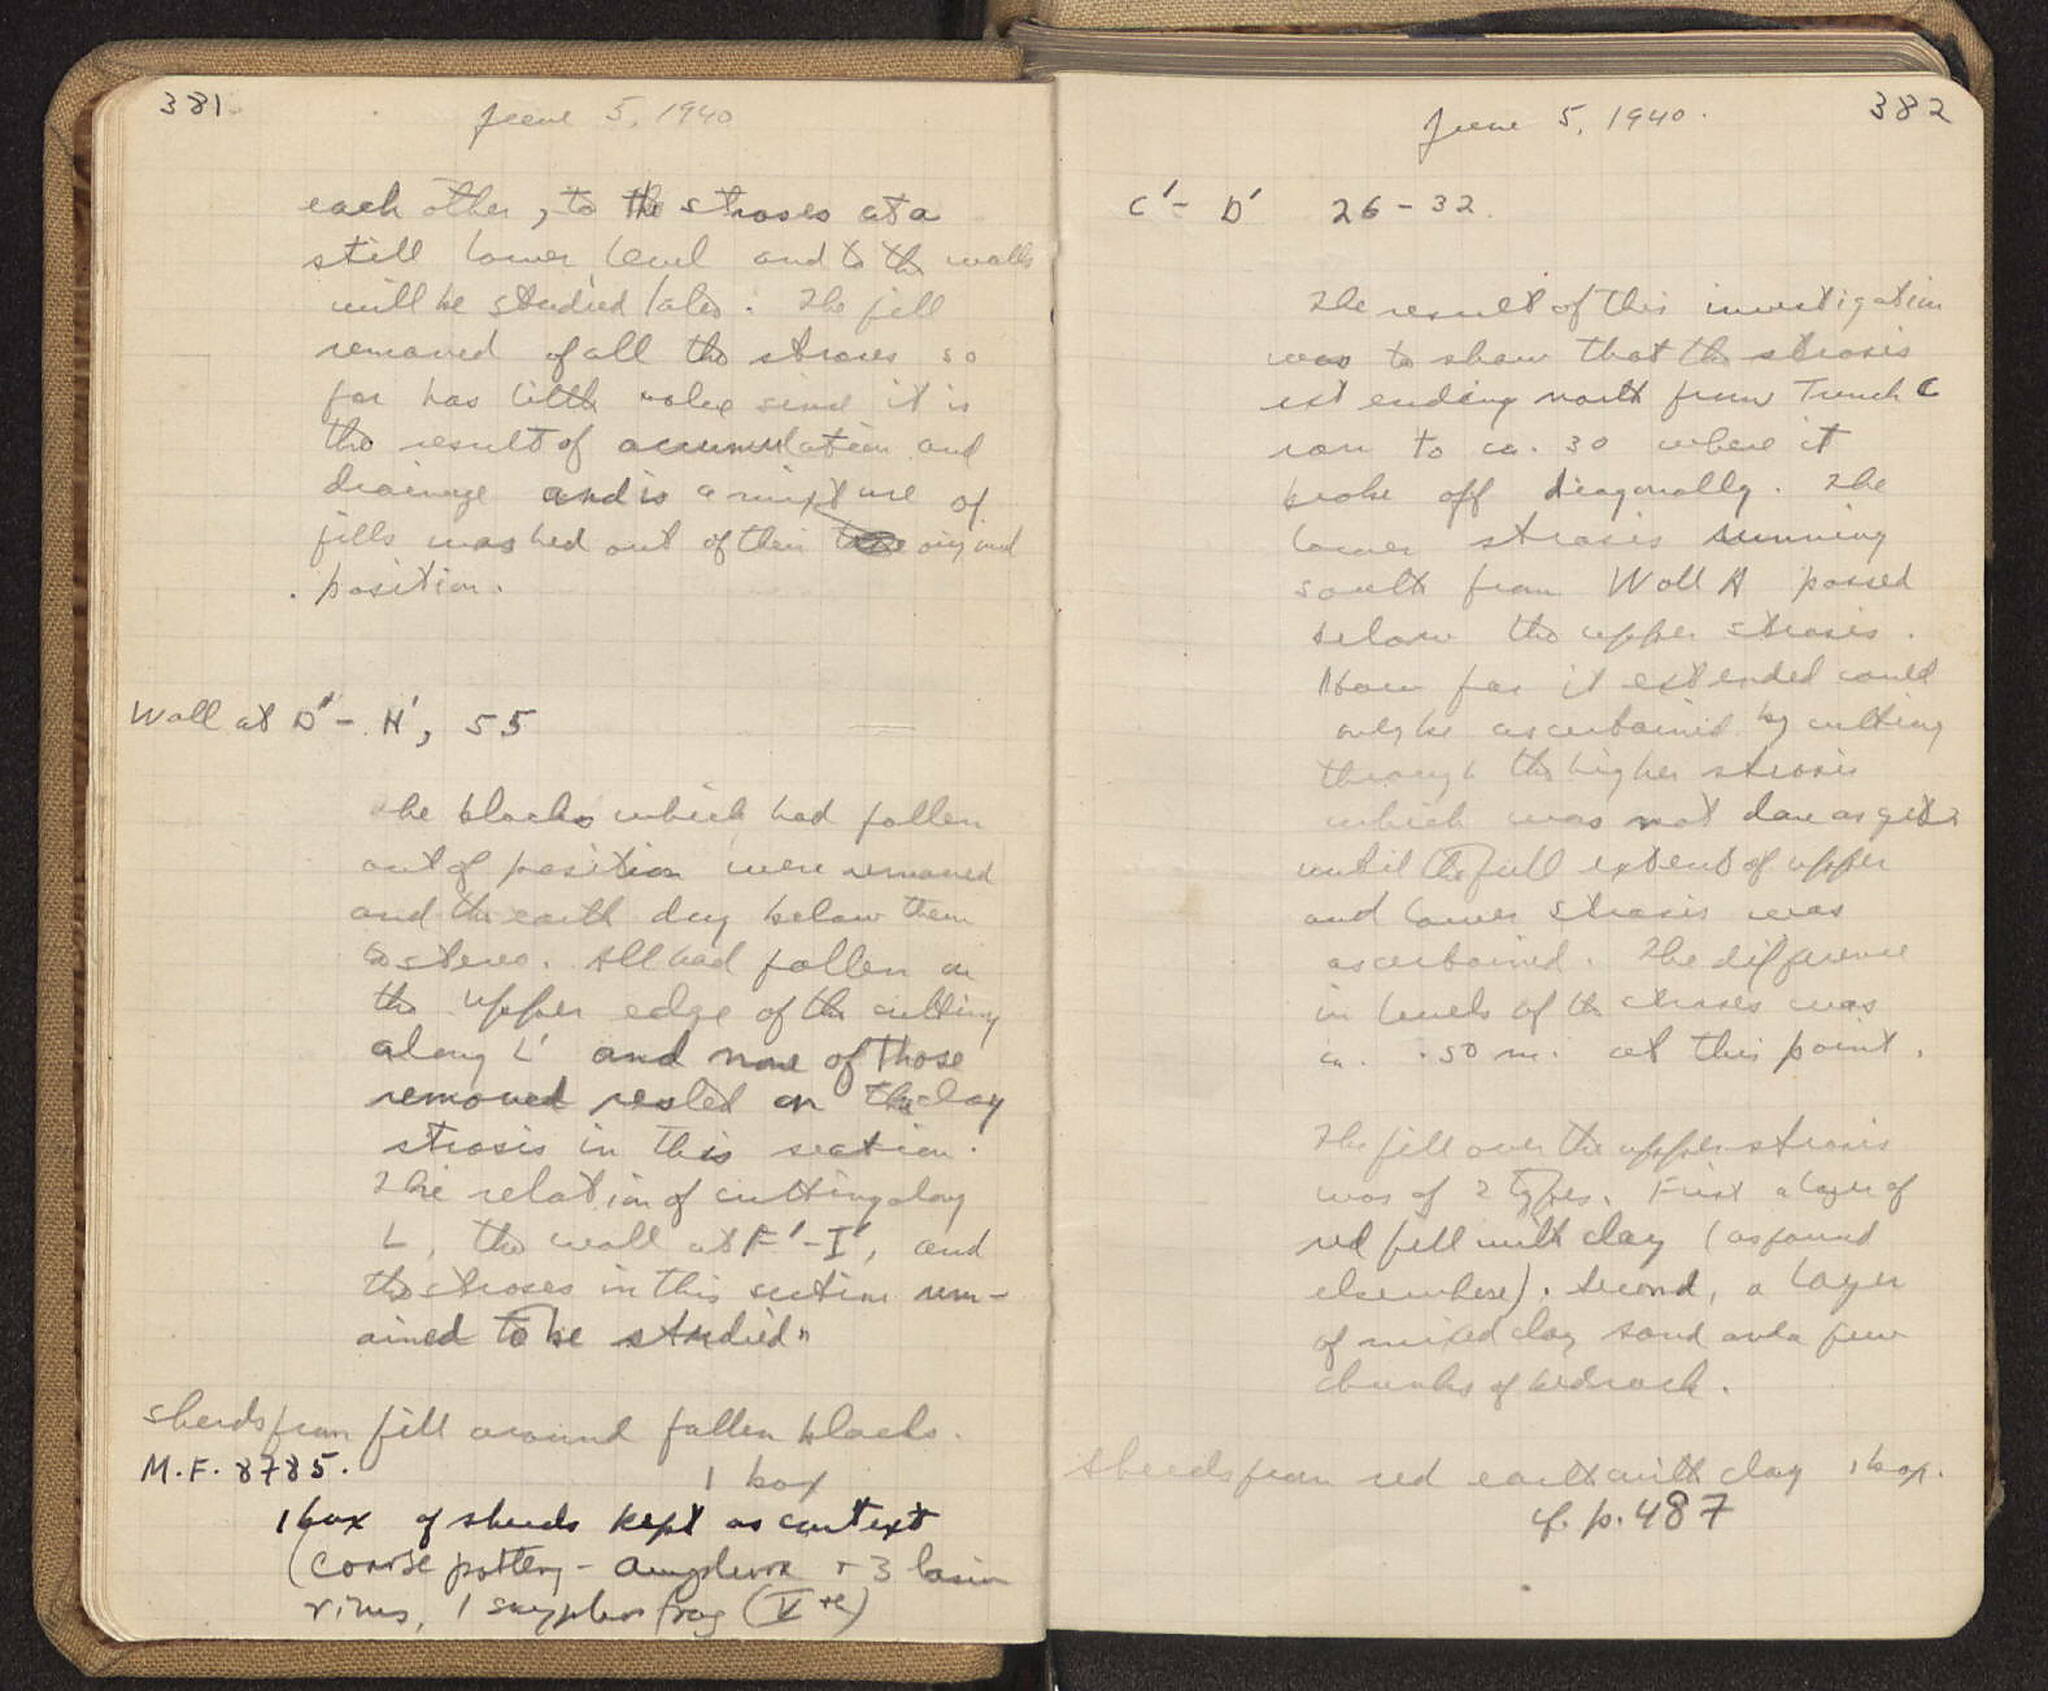 381
June 5, 1940
each other, to the stroses at a
still lower level and to the walls
will be studied later. The fill
removed of all the stroses so
far has little value since it is
the result of accumulation and
drainage and is a mixture of
fills washed out of their original
position.
Wall at D' - H', 55
The blocks which had fallen
out of position were removed
and the earth dug below them
to stereo. All had fallen on
the upper edge of the cutting
along L' and none of those
removed rested on the clay
strosis in this section.
The relation of cutting along
L, the wall at F' - I', and
the stroses in this section rem-
ained to be studied.
Sherds from fill around fallen blocks.
M.F. 8785.
1 box
1 box of sherds kept as context
(coarse pottery - amphora + 3 basin
rims, 1 skyphos frag (V)
June 5, 1940.
382
C' - D' 26 - 32.
The result of this investigation
was to show that the strosis
extending north from Trench C
ran to ca. 30 where it
broke off diagonally. The
lower strosis running
south from Wall A passed
below the upper strosis.
How far it extended could
only be ascertained by cutting
through the higher strosis
which was not done as yet
until the full extent of upper
and lower strosis was
ascertained. The difference
in levels of the stroses was
ca. .50 m. at this point.
The fill over the upper strosis
was of 2 types. First a layer of
red fill with clay (as found
elsewhere). Second, a layer
of mixed clay sand and a few
chunks of bedrock.
Sherds from red earth with clay 1 box.
cf. p. 487